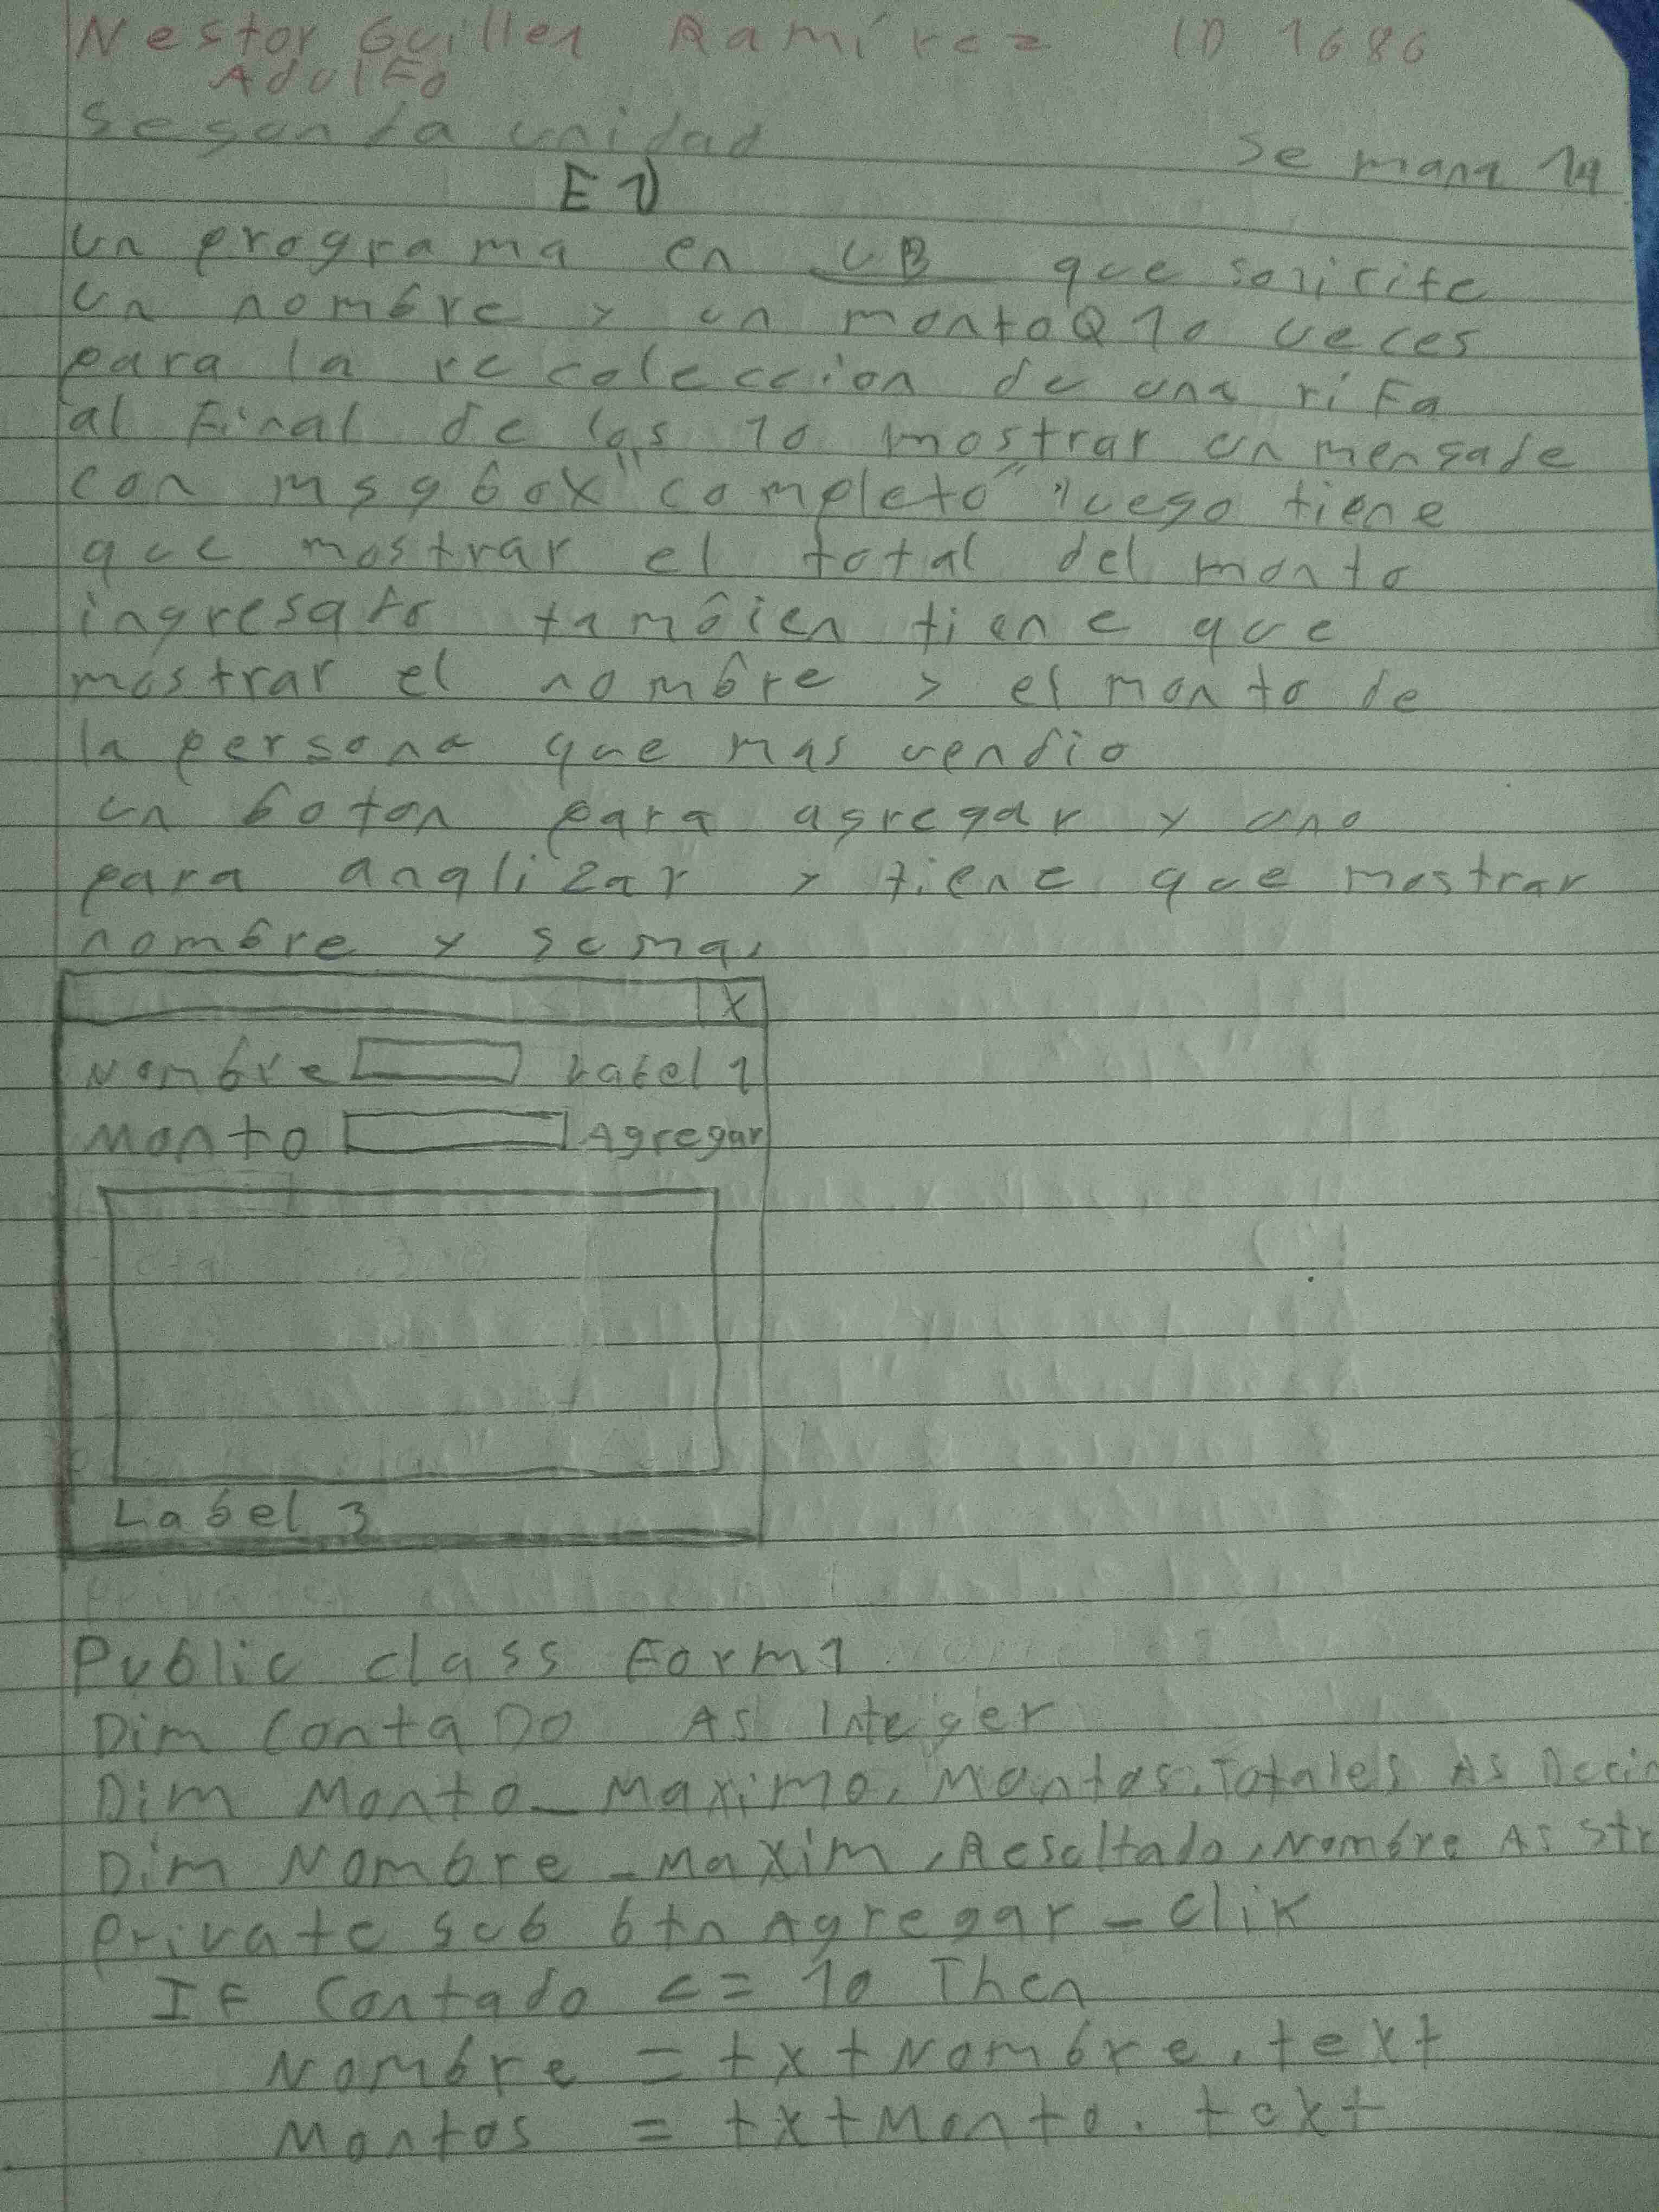 Nestor Guillen Ramírez ID 1686
Adolfo
Segunda unidad
Semana 14
E1
un programa en UB que solicite
un nombre y un monto Q 10 veces
para la recoleccion de una rifa
al Final de los 10 mostrar un mensaje
con msgbox "completo" luego tiene
que mostrar el total del monto
ingresato tambien tiene que
mostrar el nombre y el monto de
la persona que mas vendio
un boton para agregar y uno
para analizar y tiene que mostrar
nombre y suma.
X
Nombre Label 1
Monto Agregar
Label 3
Public class Form1
Dim ContaDo As Integer
Dim Monto_Maximo, Montos, Totales As Decim
Dim Nombre_Maxim, Resultado, Nombre As Str
Private sub btn Agregar_Clik
IF Contado <= 10 Then
Nombre = txtNombre.text
Montos = txtMonto.text